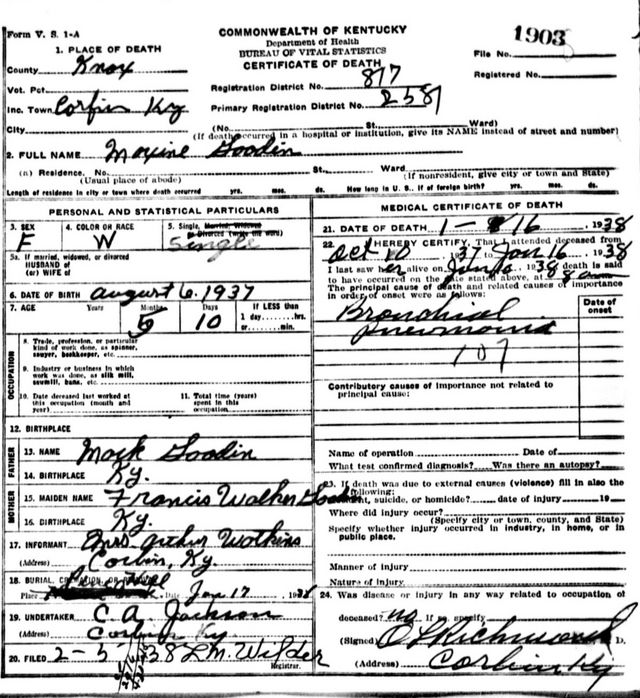 Form V. S. 1-A
COMMONWEALTH OF KENTUCKY
Department of Health
BUREAU OF VITAL STATISTICS
CERTIFICATE OF DEATH
1903
File No.
Registered No.
1. PLACE OF DEATH
County Knox
Vot. Pct.
Inc. Town Corbin Ky
City
Registration District No. 817
Primary Registration District No. 2581
(No. St. Ward)
(If death occurred in a hospital or institution, give its NAME instead of street and number)
2. FULL NAME Maxine Goodin
(a) Residence. No. St., Ward
(Usual place of abode) (If nonresident, give city or town and State)
Length of residence in city or town where death occurred yrs. mos. ds. How long in U. S., if of foreign birth? yrs. mos. ds.
PERSONAL AND STATISTICAL PARTICULARS
3. SEX F
4. COLOR OR RACE W
5. Single, Married, Widowed
or Divorced (write the word)
Single
5a. If married, widowed, or divorced
HUSBAND of
(or) WIFE of
6. DATE OF BIRTH August 6. 1937
7. AGE Years Months Days If LESS than
5 10 1 day hrs.
or min.
OCCUPATION
8. Trade, profession, or particular
kind of work done, as spinner,
sawyer, bookkeeper, etc.
9. Industry or business in which
work was done, as silk mill,
sawmill, bank, etc.
10. Date deceased last worked at
this occupation (month and
year)
11. Total time (years)
spent in this
occupation
12. BIRTHPLACE
FATHER
13. NAME Mack Goodin
14. BIRTHPLACE Ky.
MOTHER
15. MAIDEN NAME Francis Walker Goodin
16. BIRTHPLACE Ky.
17. INFORMANT Mrs. Arthur Watkins
(Address) Corbin, Ky.
18. BURIAL, CREMATION, OR REMOVAL
Place Date Jan 17 1938
19. UNDERTAKER C. A. Jackson
(Address) Corbin Ky
20. FILED 2-5-38 L. M. Wilder
Registrar.
MEDICAL CERTIFICATE OF DEATH
21. DATE OF DEATH 1-16 1938
22. I HEREBY CERTIFY, That I attended deceased from
Oct 10 1937 to Jan 16 1938
I last saw her alive on Jan 16 1938 death is said
to have occurred on the date stated above, at 8 am
The principal cause of death and related causes of importance
in order of onset were as follows:
Date of
onset
Bronchial
Pneumonia
107
Contributory causes of importance not related to
principal cause:
Name of operation Date of
What test confirmed diagnosis? Was there an autopsy?
23. If death was due to external causes (violence) fill in also the
following:
Accident, suicide, or homicide? date of injury 19
Where did injury occur?
(Specify city or town, county, and State)
Specify whether injury occurred in industry, in home, or in
public place.
Manner of injury
Nature of injury
24. Was disease or injury in any way related to occupation of
deceased? no If so, specify
(Signed) O L Richmond D.
(Address) Corbin Ky